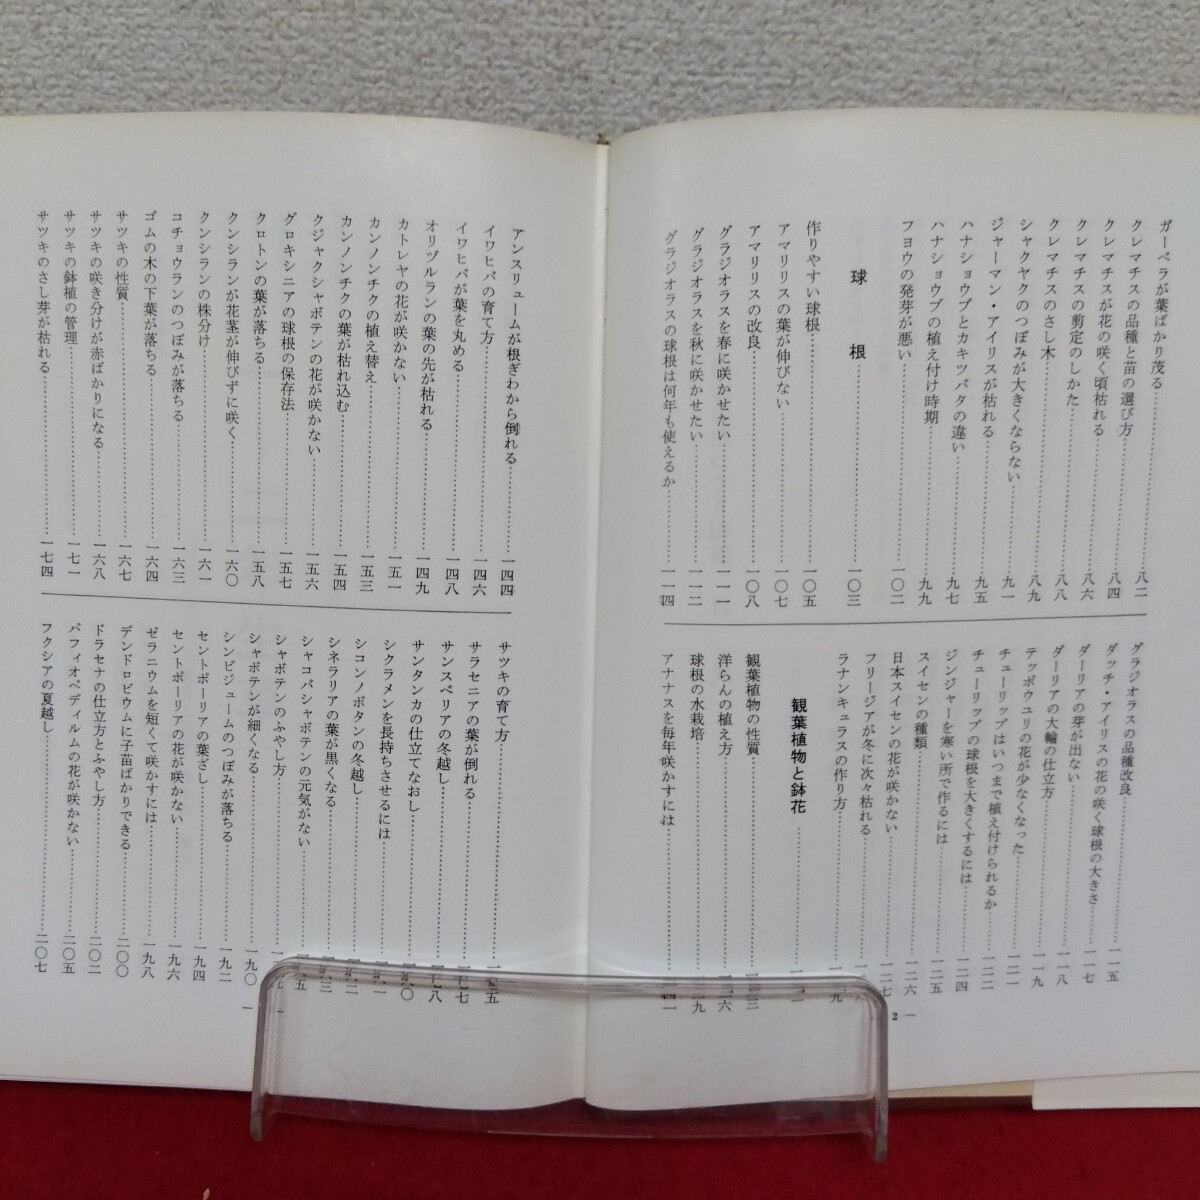 ガーベラが葉ばかり茂る……八二
クレマチスの品種と苗の選び方……八四
クレマチスが花の咲く頃枯れる……八六
クレマチスの剪定のしかた……八八
クレマチスのさし木……八九
シャクヤクのつぼみが大きくならない……九一
ジャーマン・アイリスが枯れる……九五
ハナショウブとカキツバタの違い……九八
ハナショウブの植え付け時期……九九
フヨウの発芽が悪い……一〇二
球根……一〇三
作りやすい球根……一〇五
アマリリスの葉が伸びない……一〇七
アマリリスの改良……一〇八
グラジオラスを春に咲かせたい……一一一
グラジオラスを秋に咲かせたい……一一二
グラジオラスの球根は何年も使えるか……一一四
グラジオラスの品種改良……一一五
ダッチ・アイリスの花の咲く球根の大きさ……一一七
ダーリアの芽が出ない……一一八
ダーリアの大輪の仕立方……一一九
テッポウユリの花が少なくなった……一二一
チューリップはいつまで植え付けられるか……一二二
チューリップの球根を大きくするには……一二四
ジンジャーを寒い所で作るには……一二五
スイセンの種類……一二六
日本スイセンの花が咲かない……一二七
フリージアが冬に次々枯れる……
ラナンキュラスの作り方……
観葉植物と鉢花……
観葉植物の性質……
洋らんの植え方……
球根の水栽培……
アナナスを毎年咲かすには……
2 —
アンスリュームが根ぎわから倒れる……一四四
イワヒバの育て方……一四六
イワヒバが葉を丸める……一四八
オリヅルランの葉の先が枯れる……一四九
カトレヤの花が咲かない……一五一
カンノンチクの植え替え……一五三
カンノンチクの葉が枯れ込む……一五四
クジャクシャボテンの花が咲かない……一五六
グロキシニアの球根の保存法……一五七
クロトンの葉が落ちる……一五八
クンシランが花茎が伸びずに咲く……一六〇
クンシランの株分け……一六一
コチョウランのつぼみが落ちる……一六三
ゴムの木の下葉が落ちる……一六四
サツキの性質……一六七
サツキの咲き分けが赤ばかりになる……一六八
サツキの鉢植の管理……一七一
サツキのさし芽が枯れる……一七四
サツキの育て方……一七五
サラセニアの葉が倒れる……一七七
サンスベリアの冬越し……一七八
サンタンカの仕立てなおし……一八〇
シクラメンを長持ちさせるには……
シコンノボタンの冬越し……
シネラリアの葉が黒くなる……
シャコバシャボテンの元気がない……
シャボテンのふやし方……
シャボテンが細くなる……一九〇
シンビジュームのつぼみが落ちる……一九二
セントポーリアの葉ざし……一九四
セントポーリアの花が咲かない……一九六
ゼラニウムを短くて咲かすには……一九八
デンドロビウムに子苗ばかりできる……二〇〇
ドラセナの仕立方とふやし方……二〇二
パフィオペディルムの花が咲かない……二〇五
フクシアの夏越し……二〇七